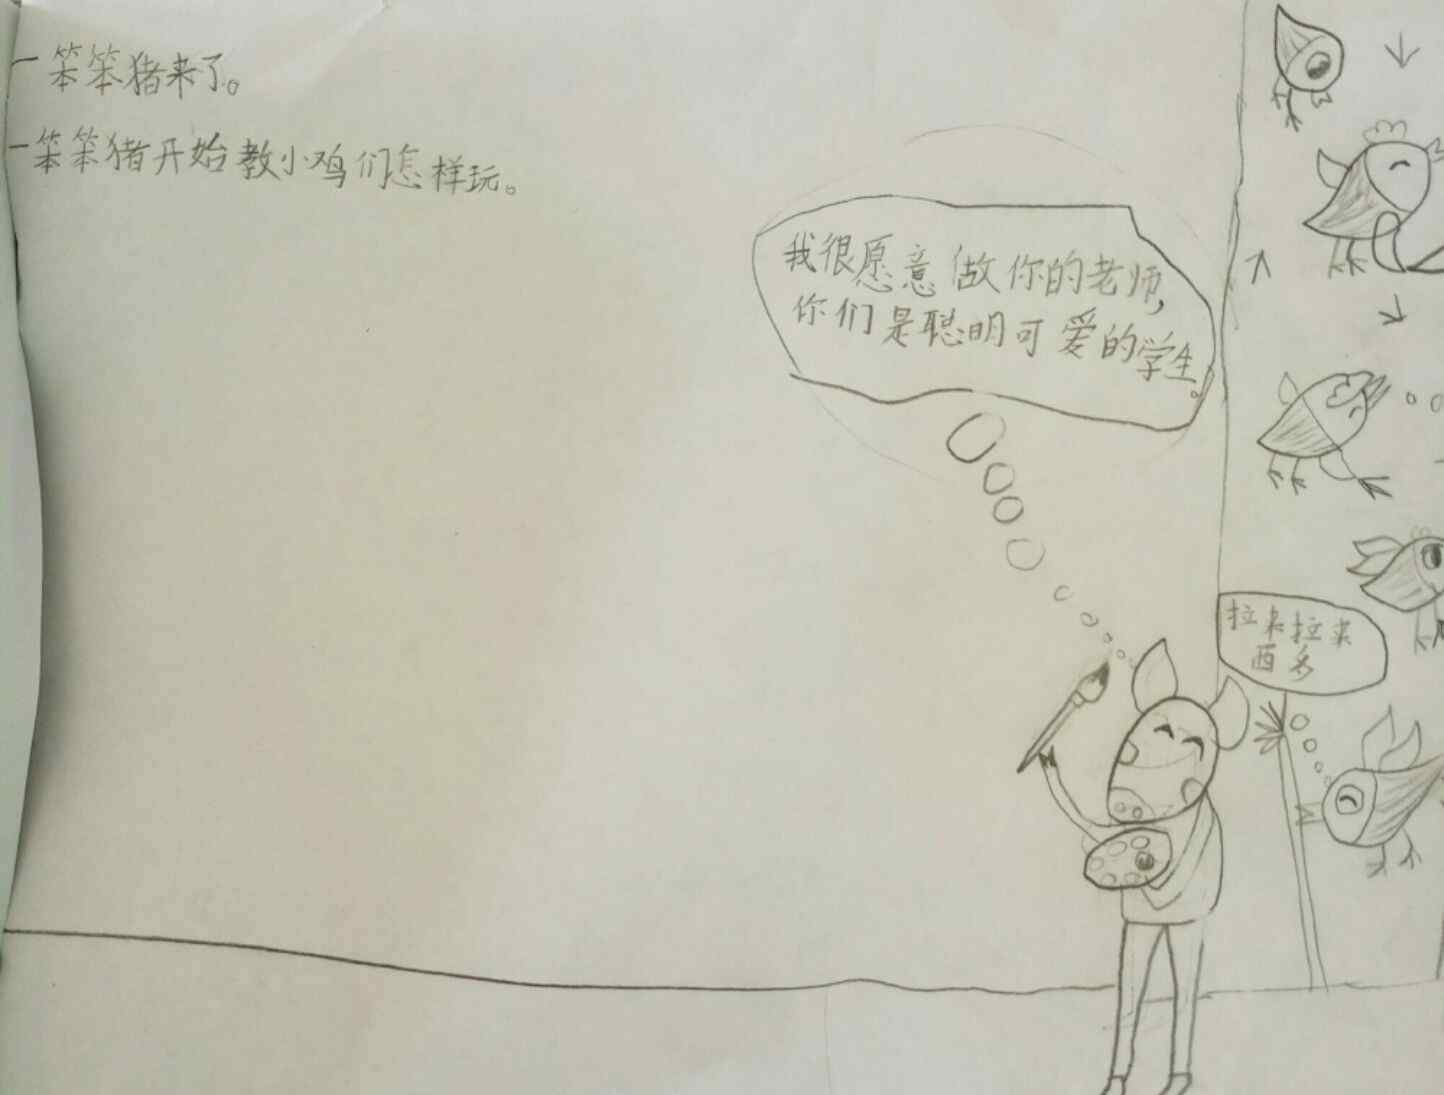 一笨笨猪来了。
一笨笨猪开始教小鸡们怎样玩。
我很愿意做你的老师,
你们是聪明可爱的学生。
拉来拉来
西多